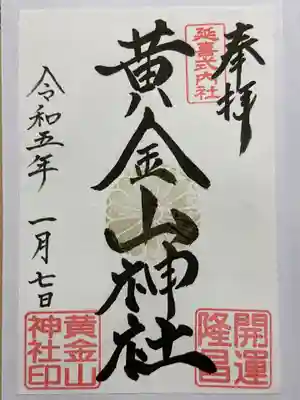 奉拝
延喜式内社
黄金山神社
令和五年 一月七日
開運
隆昌
黄金山
神社印